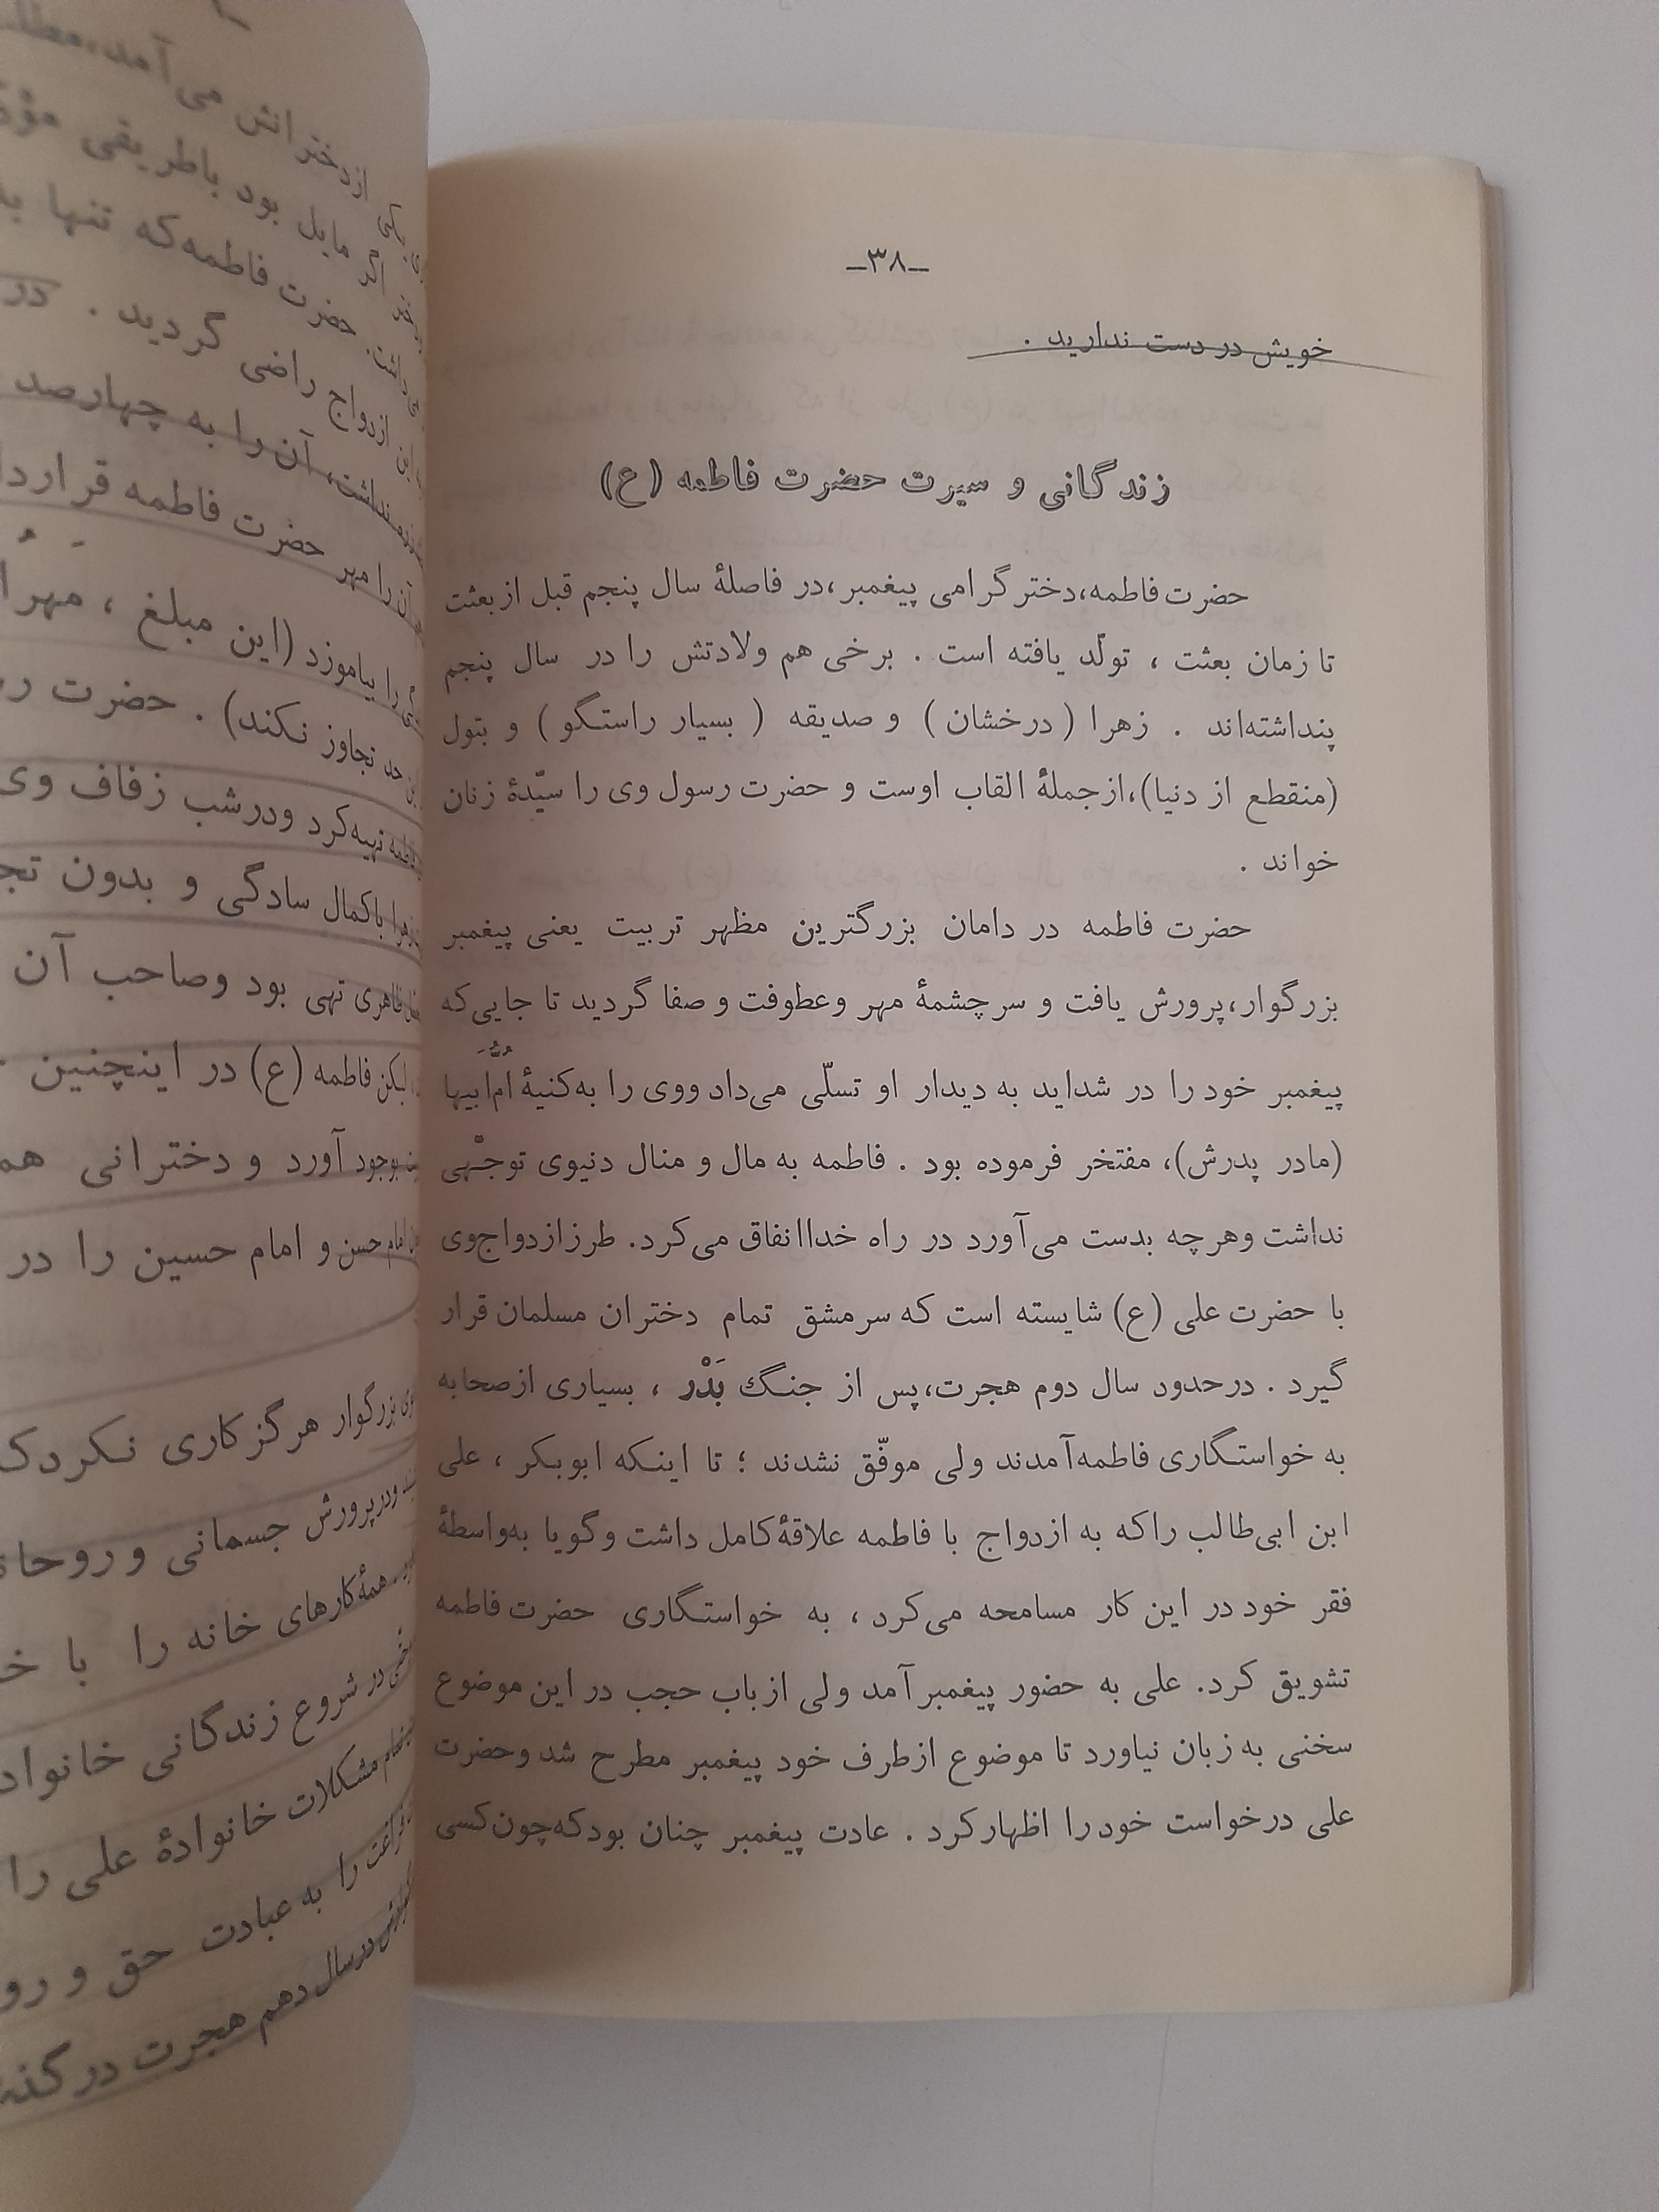 –۳۸–
خویش در دست ندارید .
زندگانی و سیرت حضرت فاطمه (ع)
حضرت فاطمه،دختر گرامی پیغمبر،در فاصلهٔ سال پنجم قبل از بعثت
تا زمان بعثت ، تولّد یافته است . برخی هم ولادتش را در سال پنجم
پنداشته‌اند . زهرا ( درخشان ) و صدیقه ( بسیار راستگو ) و بتول
(منقطع از دنیا)،ازجملهٔ القاب اوست و حضرت رسول وی را سیّدهٔ زنان
خواند .
حضرت فاطمه در دامان بزرگترین مظهر تربیت یعنی پیغمبر
بزرگوار،پرورش یافت و سرچشمهٔ مهر وعطوفت و صفا گردید تا جایی‌که
پیغمبر خود را در شداید به دیدار او تسلّی می‌داد ووی را به‌کنیهٔ اُمُّ‌اَبیها
(مادر پدرش)، مفتخر فرموده بود . فاطمه به مال و منال دنیوی توجّهی
نداشت وهرچه بدست می‌آورد در راه خداانفاق می‌کرد. طرزازدواج‌وی
با حضرت علی (ع) شایسته است که سرمشق تمام دختران مسلمان قرار
گیرد . درحدود سال دوم هجرت،پس از جنگ بَدْر ، بسیاری ازصحابه
به خواستگاری فاطمه‌آمدند ولی موفّق نشدند ؛ تا اینکه ابوبکر ، علی
ابن ابی‌طالب راکه به ازدواج با فاطمه علاقهٔ‌کامل داشت وگویا به‌واسطهٔ
فقر خود در این کار مسامحه می‌کرد ، به خواستگاری حضرت فاطمه
تشویق کرد. علی به حضور پیغمبرآمد ولی ازباب حجب در این موضوع
سخنی به زبان نیاورد تا موضوع ازطرف خود پیغمبر مطرح شد وحضرت
علی درخواست خود را اظهارکرد . عادت پیغمبر چنان بودکه‌چون‌کسی
ازدخترانش می‌آمد،
مایل بود باطریقی
حضرت فاطمه‌که تنها
ازدواج راضی گردید . در
آن را به چهارصد
را مهر حضرت فاطمه قرار
را بیاموزد (این مبلغ ،
حد تجاوز نکند) . حضرت
تهیه‌کرد ودرشب زفاف وی
باکمال سادگی و بدون
تهی بود وصاحب آن
فاطمه (ع) در اینچنین
آورد و دخترانی
امام حسن و امام حسین را در
بزرگوار هرگزکاری نکرد
ودرپرورش جسمانی و
همهٔ‌کارهای خانه را با
در شروع زندگانی
مشکلات خانوادهٔ علی را
را به عبادت حق و
درسال دهم هجرت